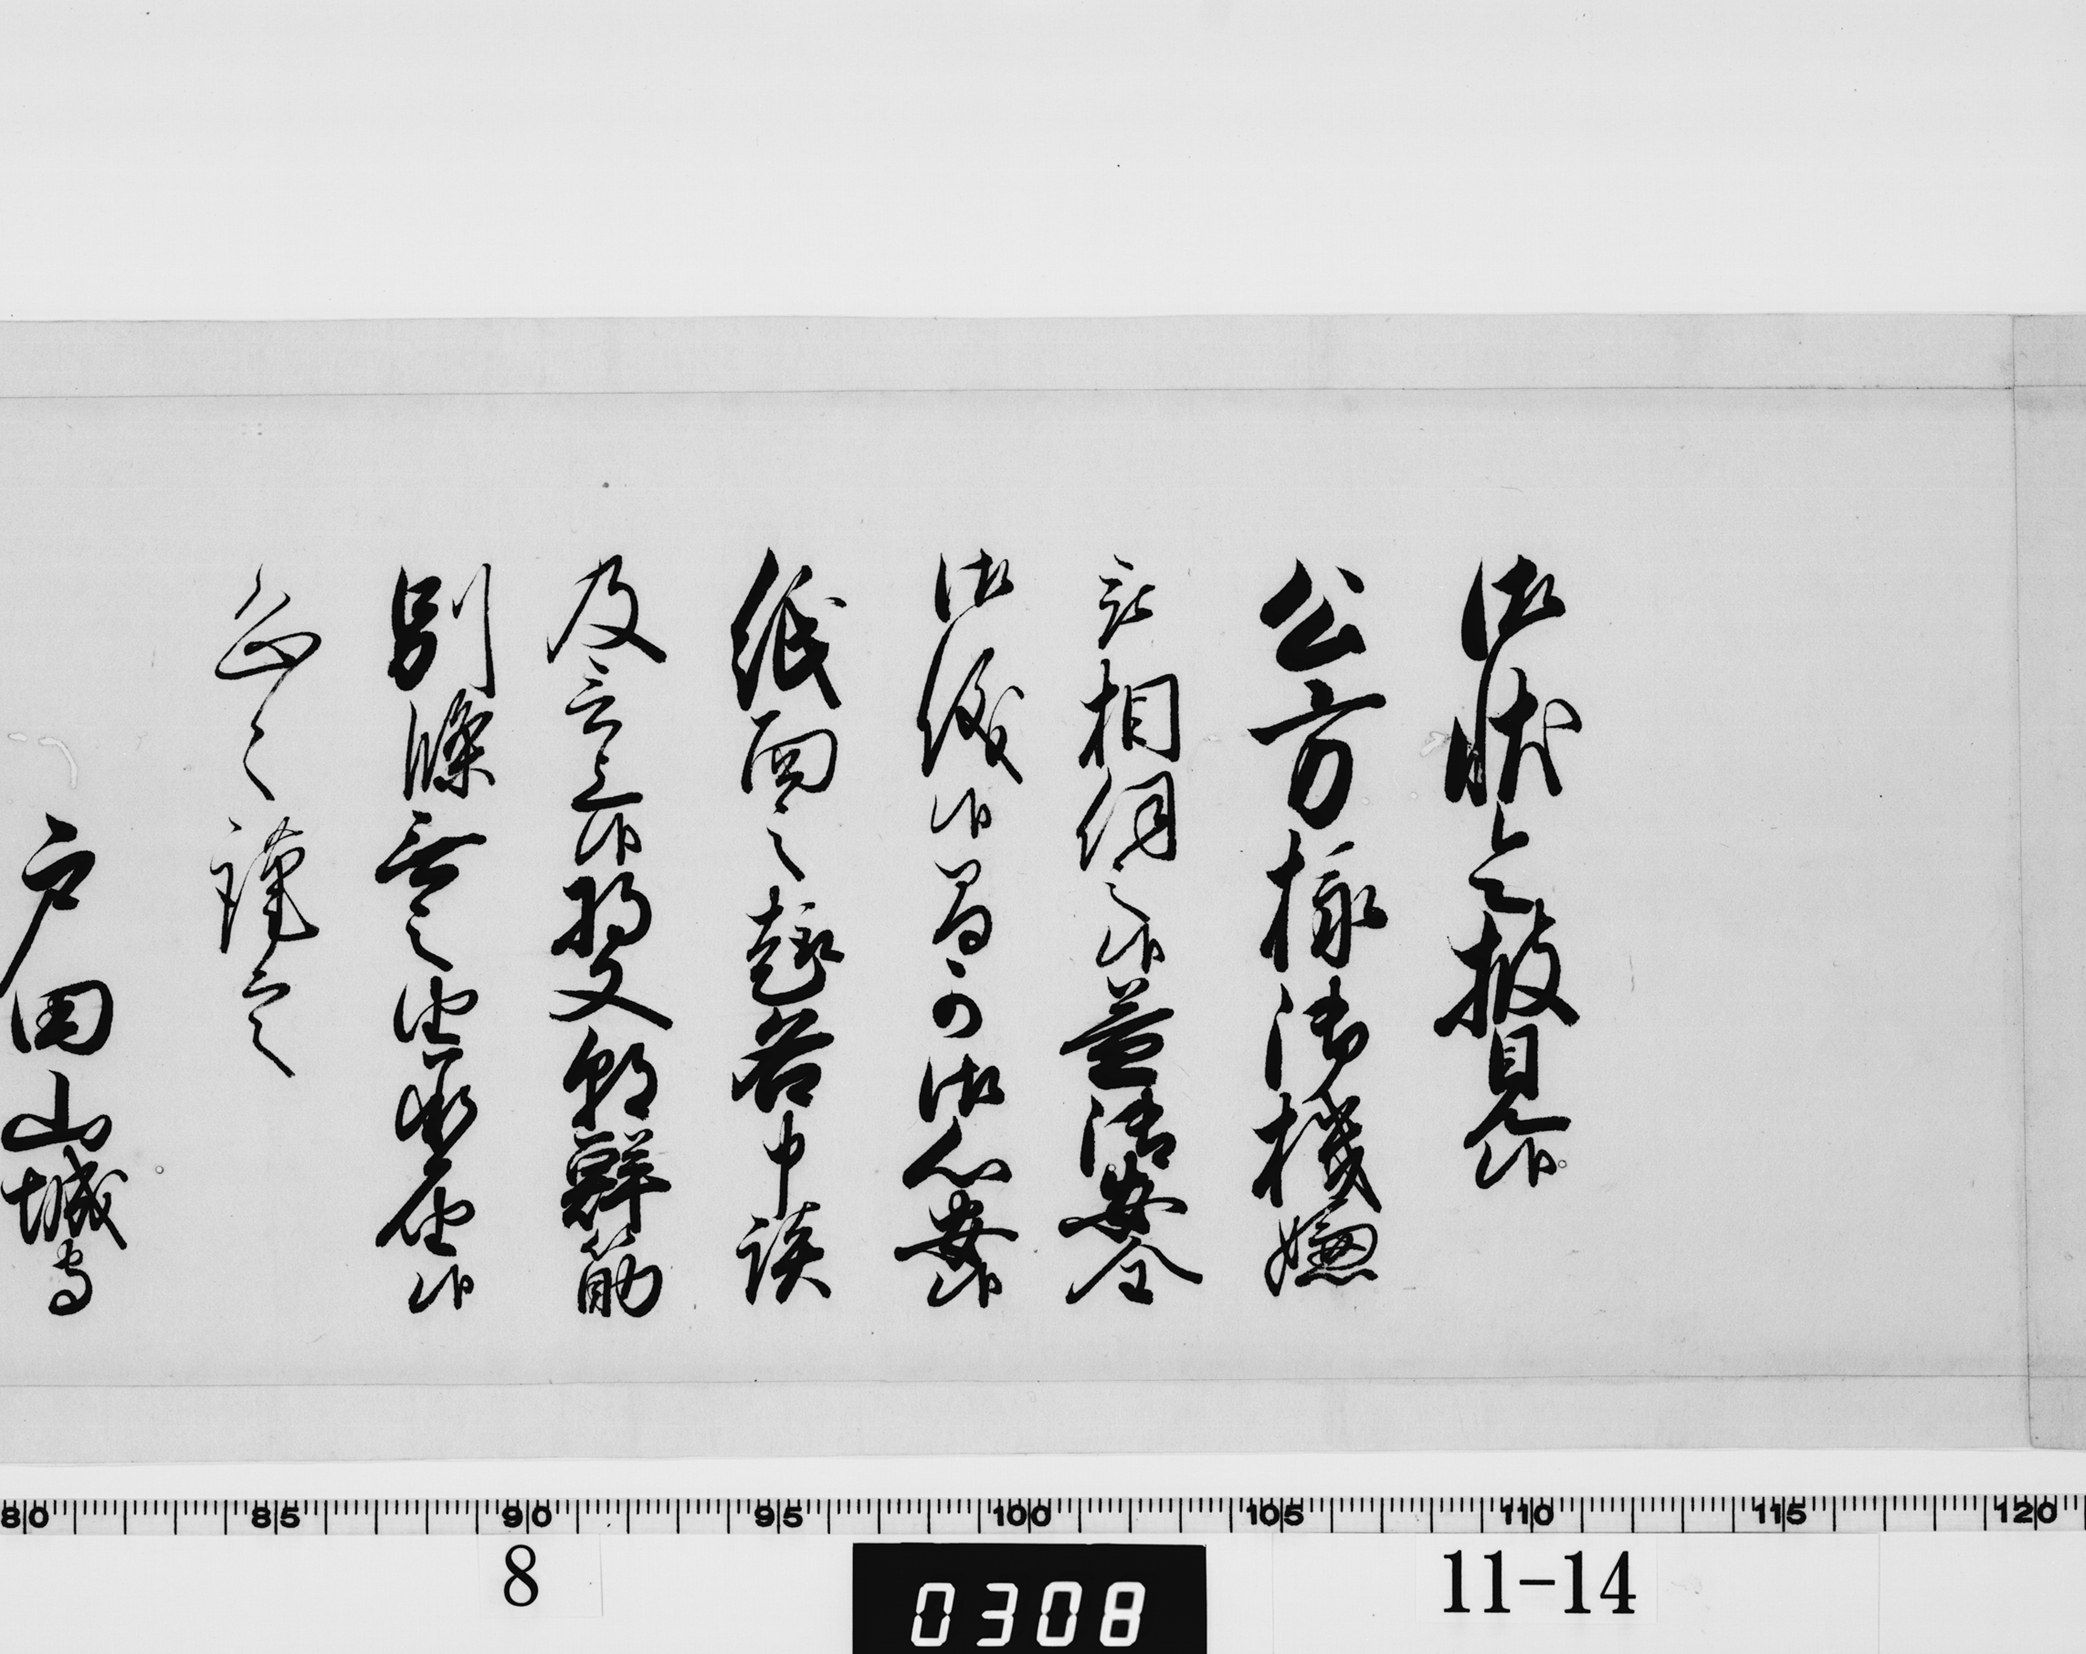 御状令披見候
公方様御機嫌
被相伺之候益御安全
御儀候間可御心安候
紙面之趣各申談
及言上候将又朝鮮筋
別條無之由承届候
恐々謹言
戸田山城守
80 85 90 95 100 105 110 115 120
8
0308
11-14